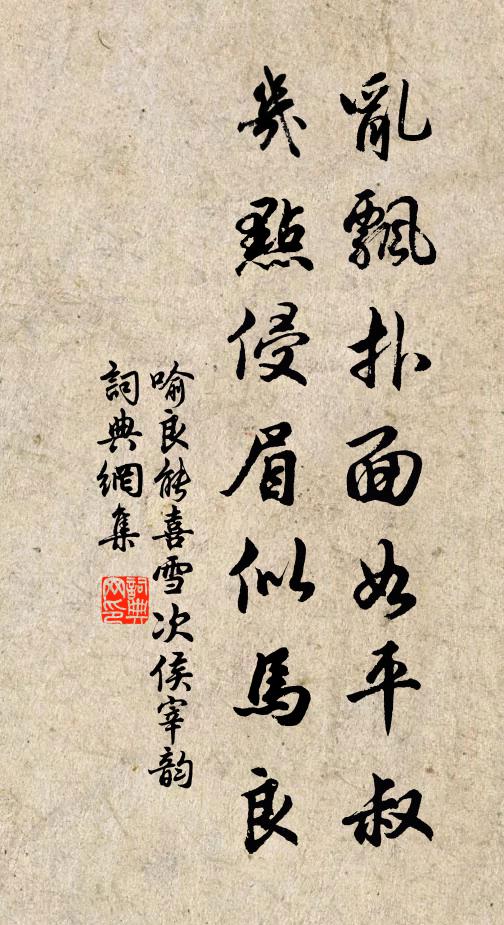 亂飄扑面如平叔
幾點侵眉似馬良
喻良能喜雪次侯宰韵
詞典網集
詞典網印